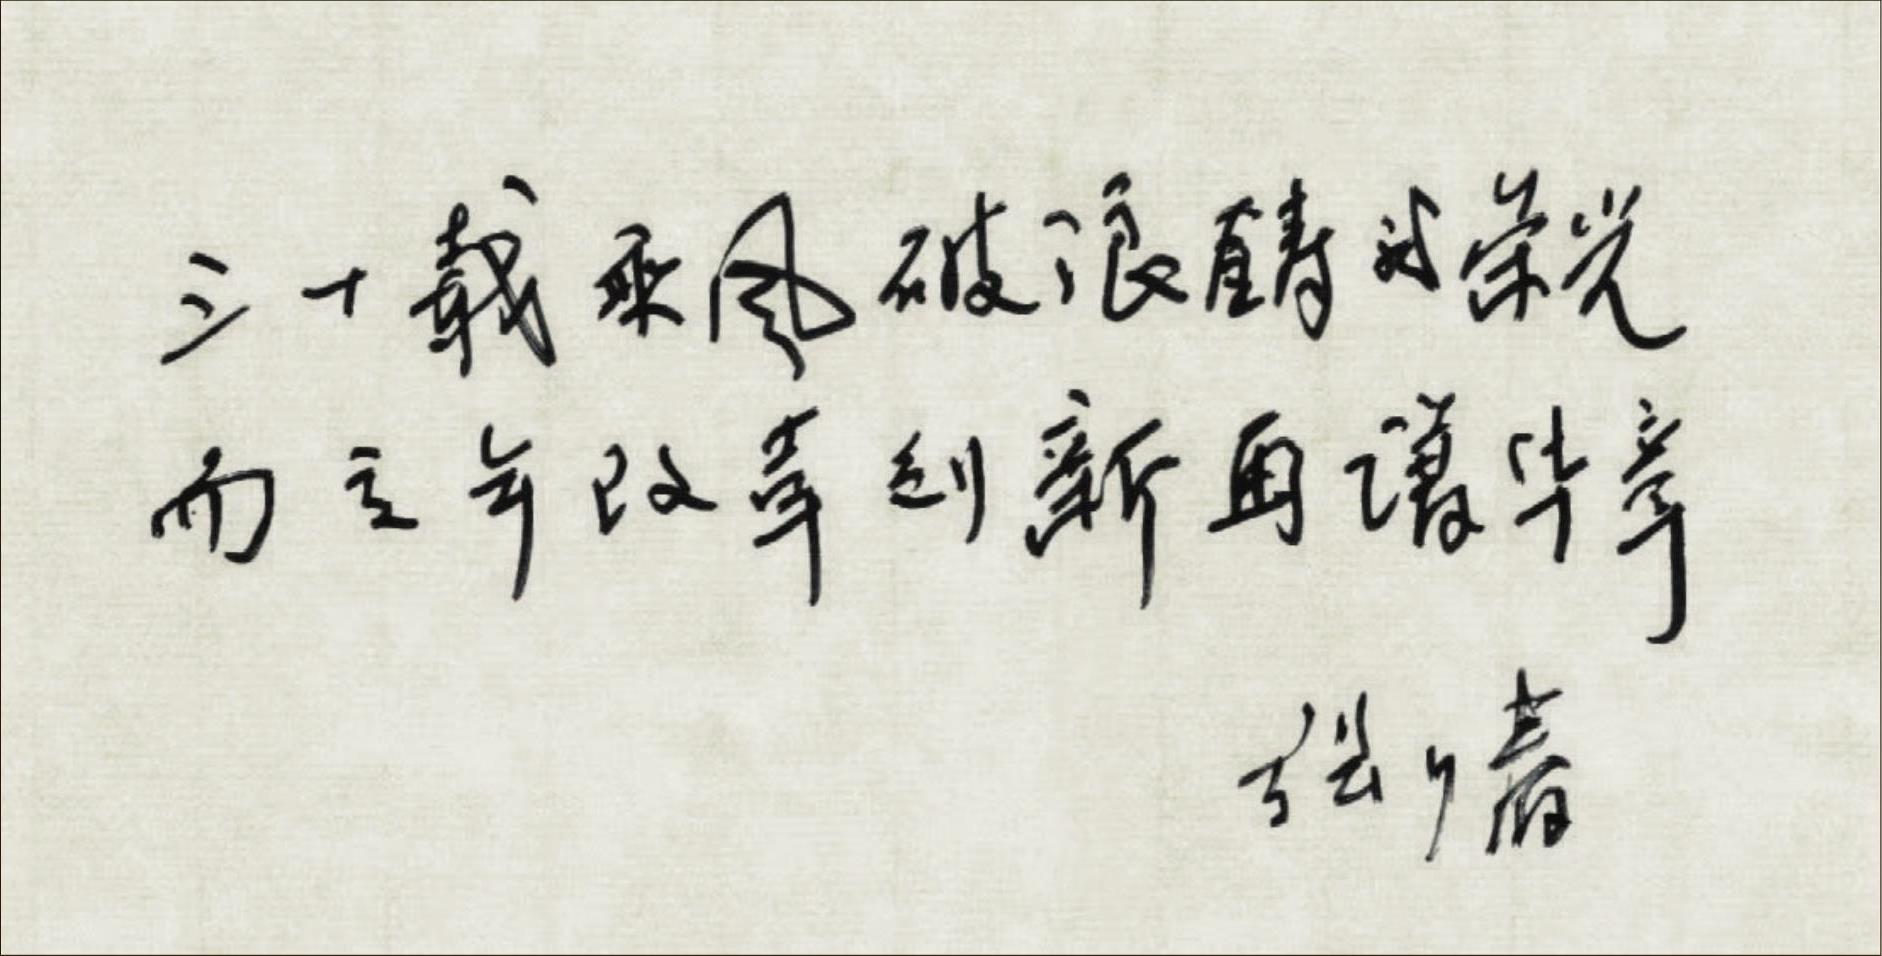 三十载乘风破浪铸就荣光
而立年改革创新再谱华章